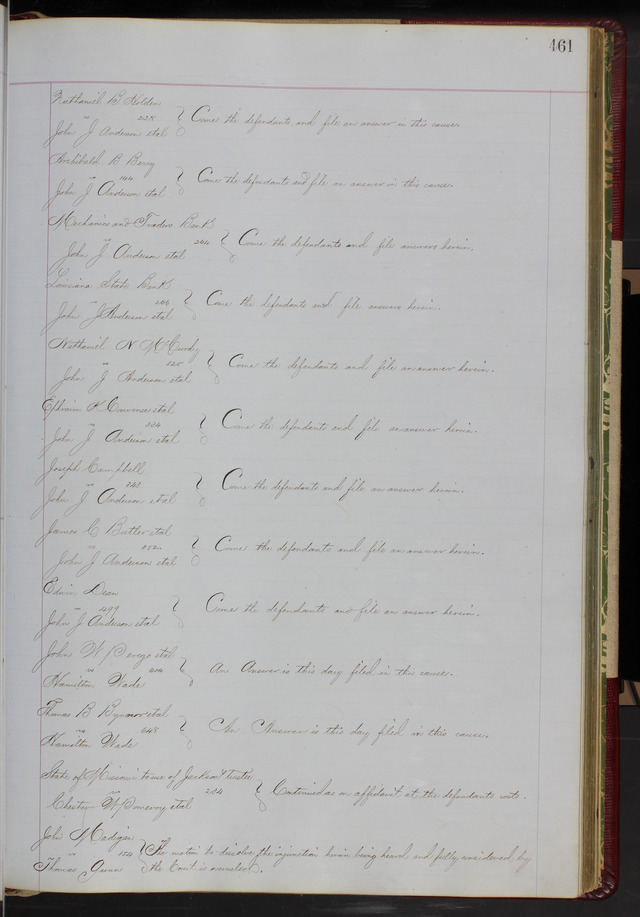 461
Nathaniel B Holden
vs 228 Come the defendants and file an answer in this cause.
John J Anderson etal
Archibald B Berry
vs 144 Come the defendants and file an answer in this cause.
John J Anderson etal
Mechanics and Traders Bank
vs 244 Come the defendants and file answers herein.
John J Anderson etal
Louisiana State Bank
vs 246 Come the defendants and file answers herein.
John J Anderson etal
Nathaniel N McCurdy
vs 225 Come the defendants and file an answer herein.
John J Anderson etal
Ephraim K Converse etal
vs 224 Come the defendants and file an answer herein.
John J Anderson etal
Joseph Campbell
vs 243 Come the defendants and file an answer herein.
John J Anderson etal
James C Butler etal
vs Come the defendants and file an answer herein.
John J Anderson etal
Edwin Dean
vs 499 Come the defendants and file an answer herein.
John J Anderson etal
John W etal
vs An Answer is this day filed in this cause.
Hamilton Wade
Thomas B etal
vs 648 An Answer is this day filed in this cause.
Hamilton Wade
State of Missouri to use of Jackson Trustee
vs 234 Continued as on affidavit at the defendants costs.
Chester W Pomeroy etal
John Madigan
vs 154 The motion to dissolve the injunction herein being heard and fully considered by
Thomas Gunn the Court is overruled.